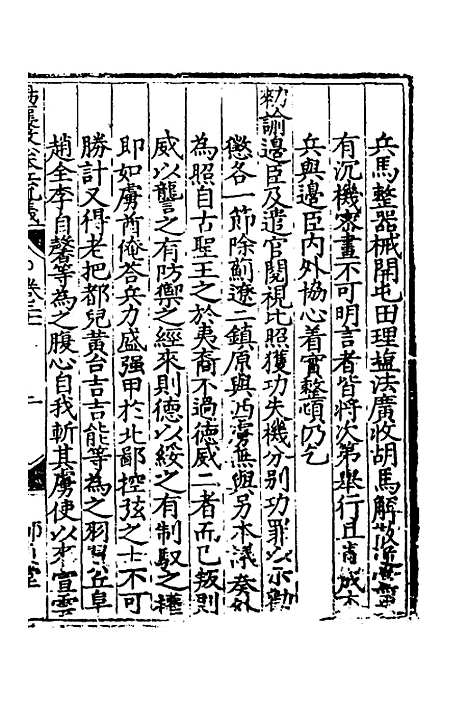 兵馬整器械開屯田理塩法廣收胡馬解散
有沉機密畫不可明言者皆將次第舉行且責成本
兵與邊臣內外協心着實整頓乃乞
勑諭邊臣及遣官閱視比照獲功失機分別功罪以示勸
懲各一節除薊遼二鎮原與西虜無與另本議奏外
為照自古聖王之於夷裔不過德威二者而已叛則
威以讋之有防禦之經來則德以綏之有制馭之權
即如虜酋俺荅兵力盛强甲於北鄙控弦之士不可
勝計又得老把都兒黃台吉吉能等為之羽翼丘阜
趙全李自馨等為之腹心自我斬其虜使以來宣雲